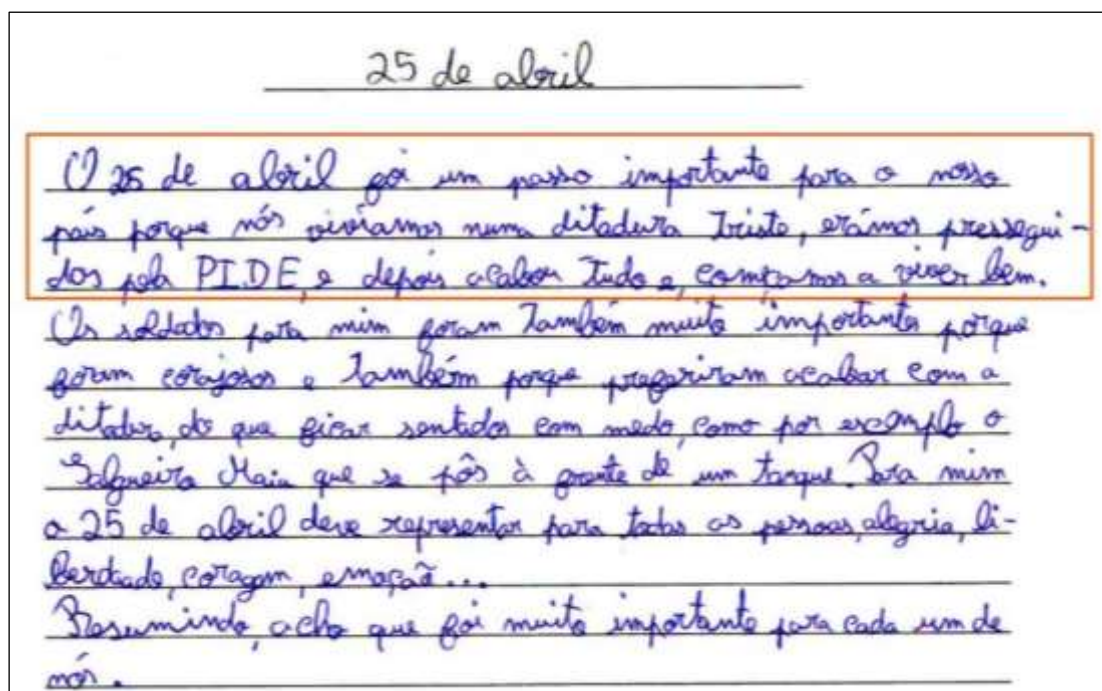 25 de abril
O 25 de abril foi um passo importante para o nosso
país porque nós viviamos numa ditadura triste, erámos pressegui-
dos pela PIDE, e depois acabou tudo e, começamos a viver bem.
Os soldados para mim foram também muito importantes porque
foram corajosos e também porque preferiram acabar com a
ditadura, do que ficar sentados com medo, como por exemplo o
Salgueiro Maia que se pôs à frente de um tanque. Para mim
o 25 de abril deve representar para todas as pessoas, alegria, li-
berdade, coragem, emoção...
Resumindo, acho que foi muito importante para cada um de
nós.